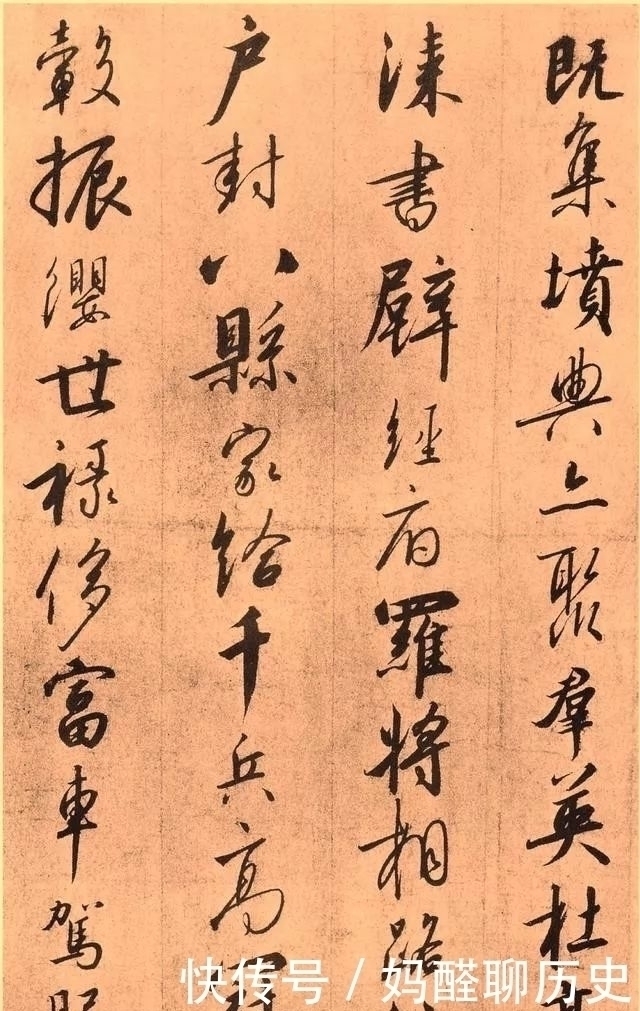 既集墳典亦聚羣英杜
漆書壁經府羅將相路
户封八縣家給千兵高
轂振纓世祿侈富車駕
快传号 / 妈醛聊历史